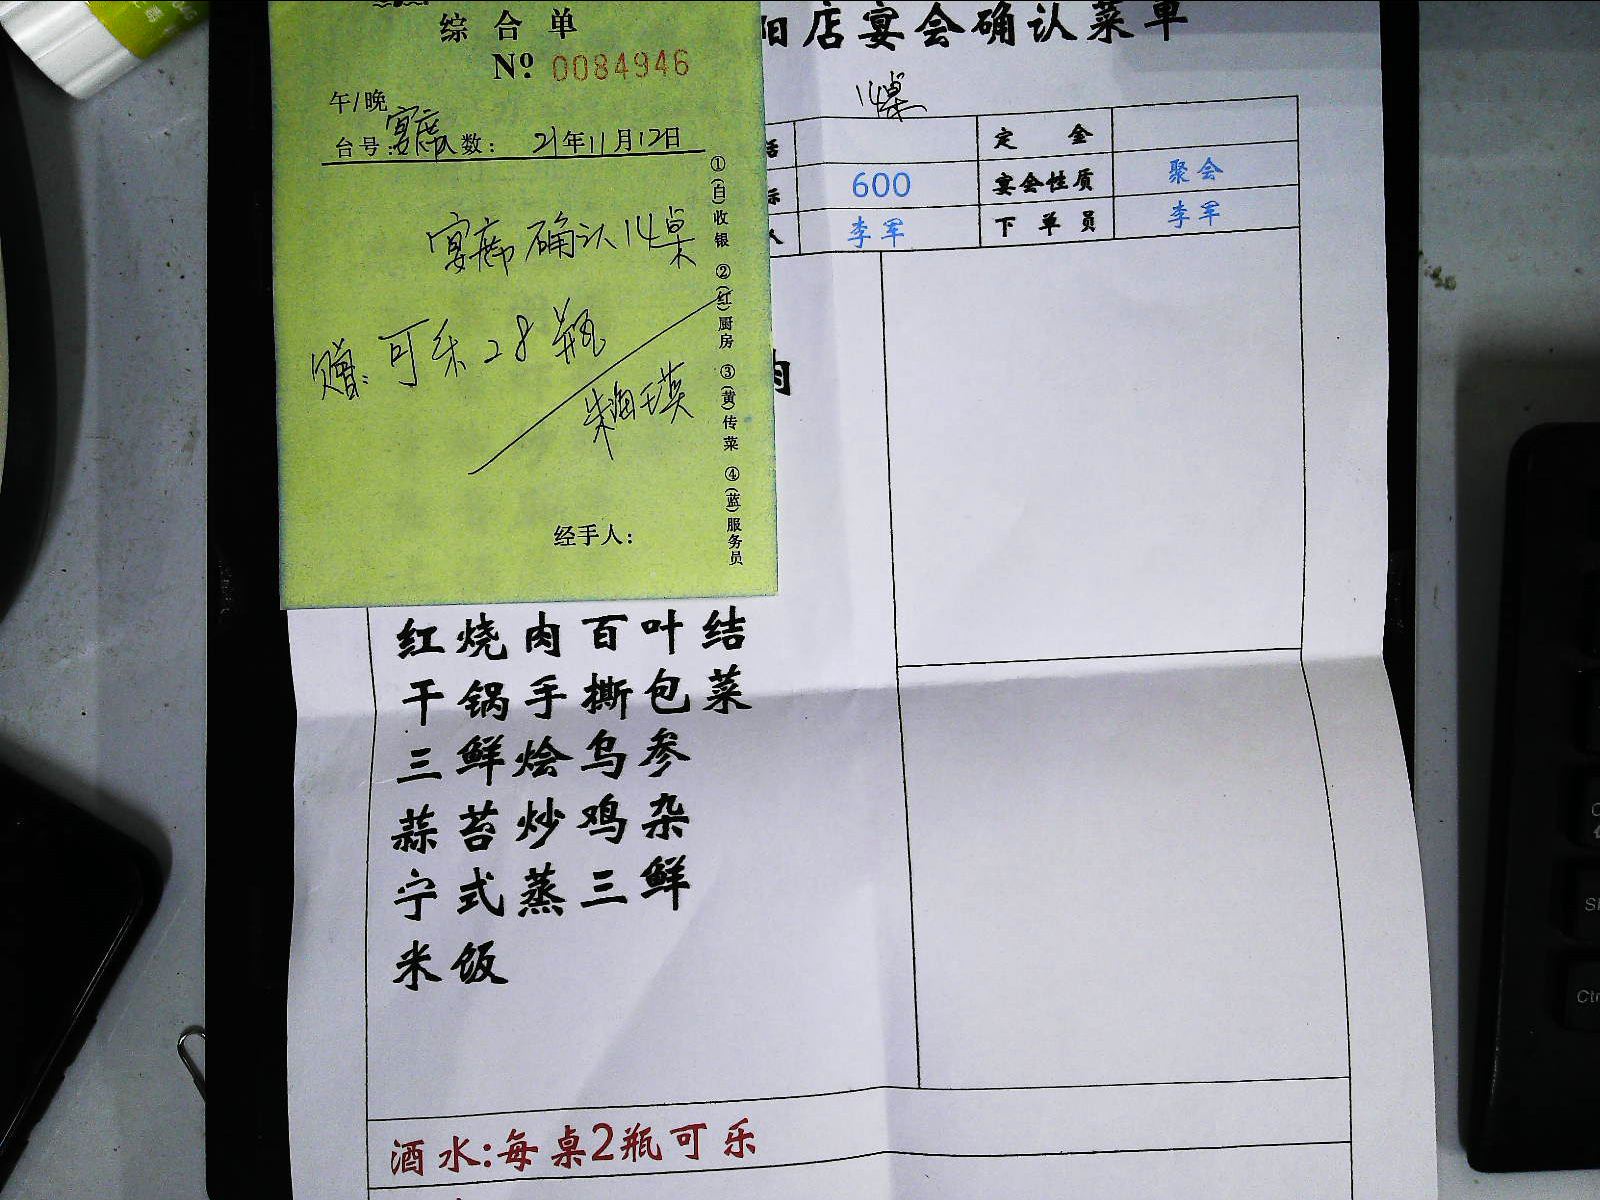 综合单
№ 0084946
午/晚
台号:宴席 数: 21年11月12日
宴席确认14桌
赠:可乐28瓶
经手人:
①(白)收银 ②(红)厨房 ③(黄)传菜 ④(蓝)服务员
阳店宴会确认菜单
14桌
话 定金
标 600 宴会性质 聚会
人 李军 下单员 李军
肉
红烧肉百叶结
干锅手撕包菜
三鲜烩乌参
蒜苔炒鸡杂
宁式蒸三鲜
米饭
酒水:每桌2瓶可乐